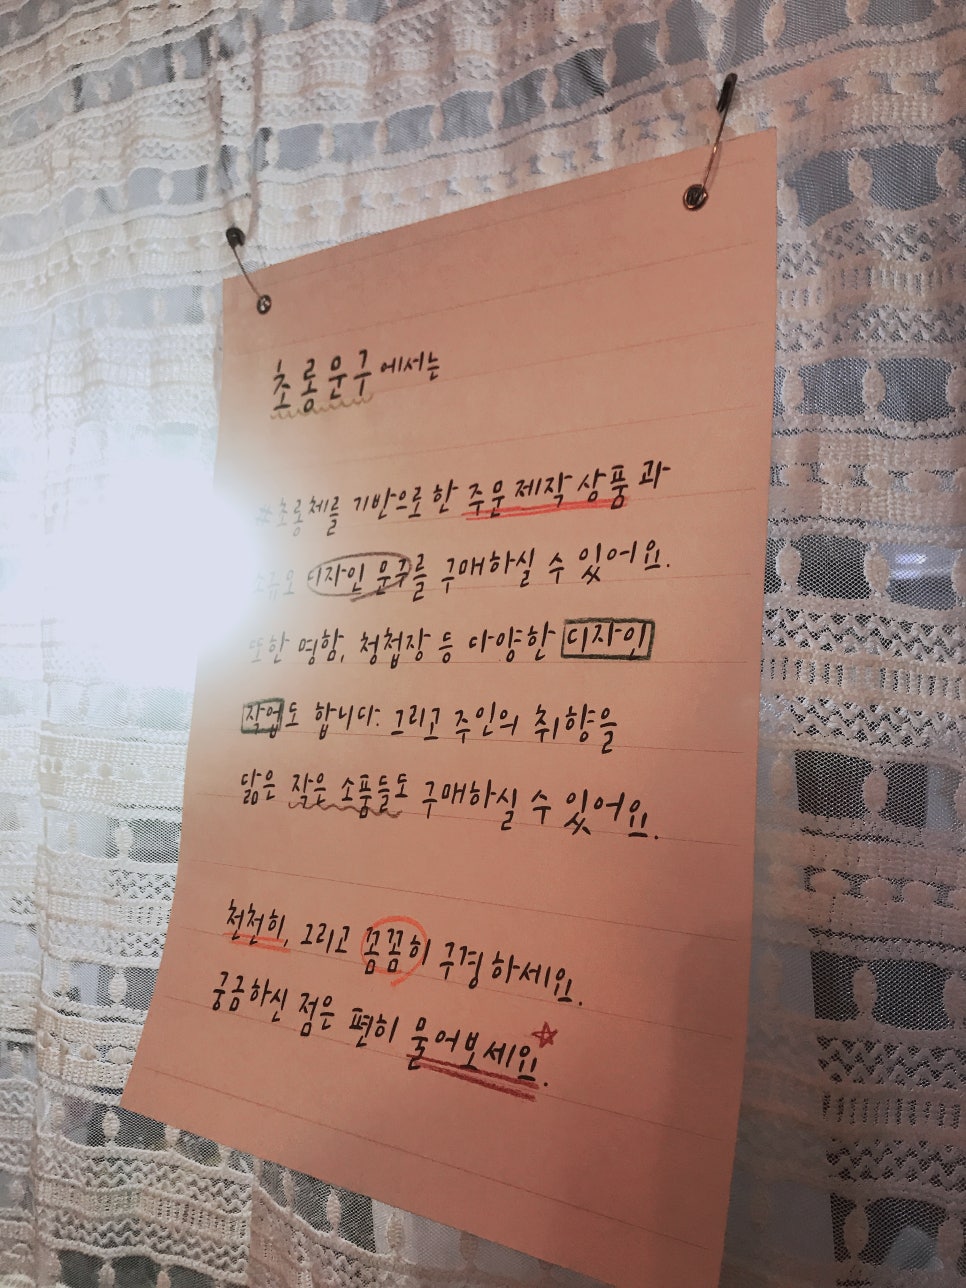 초롱문구에서는
#초롱체를 기반으로한 주문제작 상품과
디자인 문구를 구매하실 수 있어요.
또한 명함, 청첩장 등 다양한 디자인
작업도 합니다. 그리고 주인의 취향을
닮은 작은 소품들도 구매하실 수 있어요.
천천히, 그리고 꼼꼼히 구경하세요.
궁금하신 점은 편히 물어보세요.